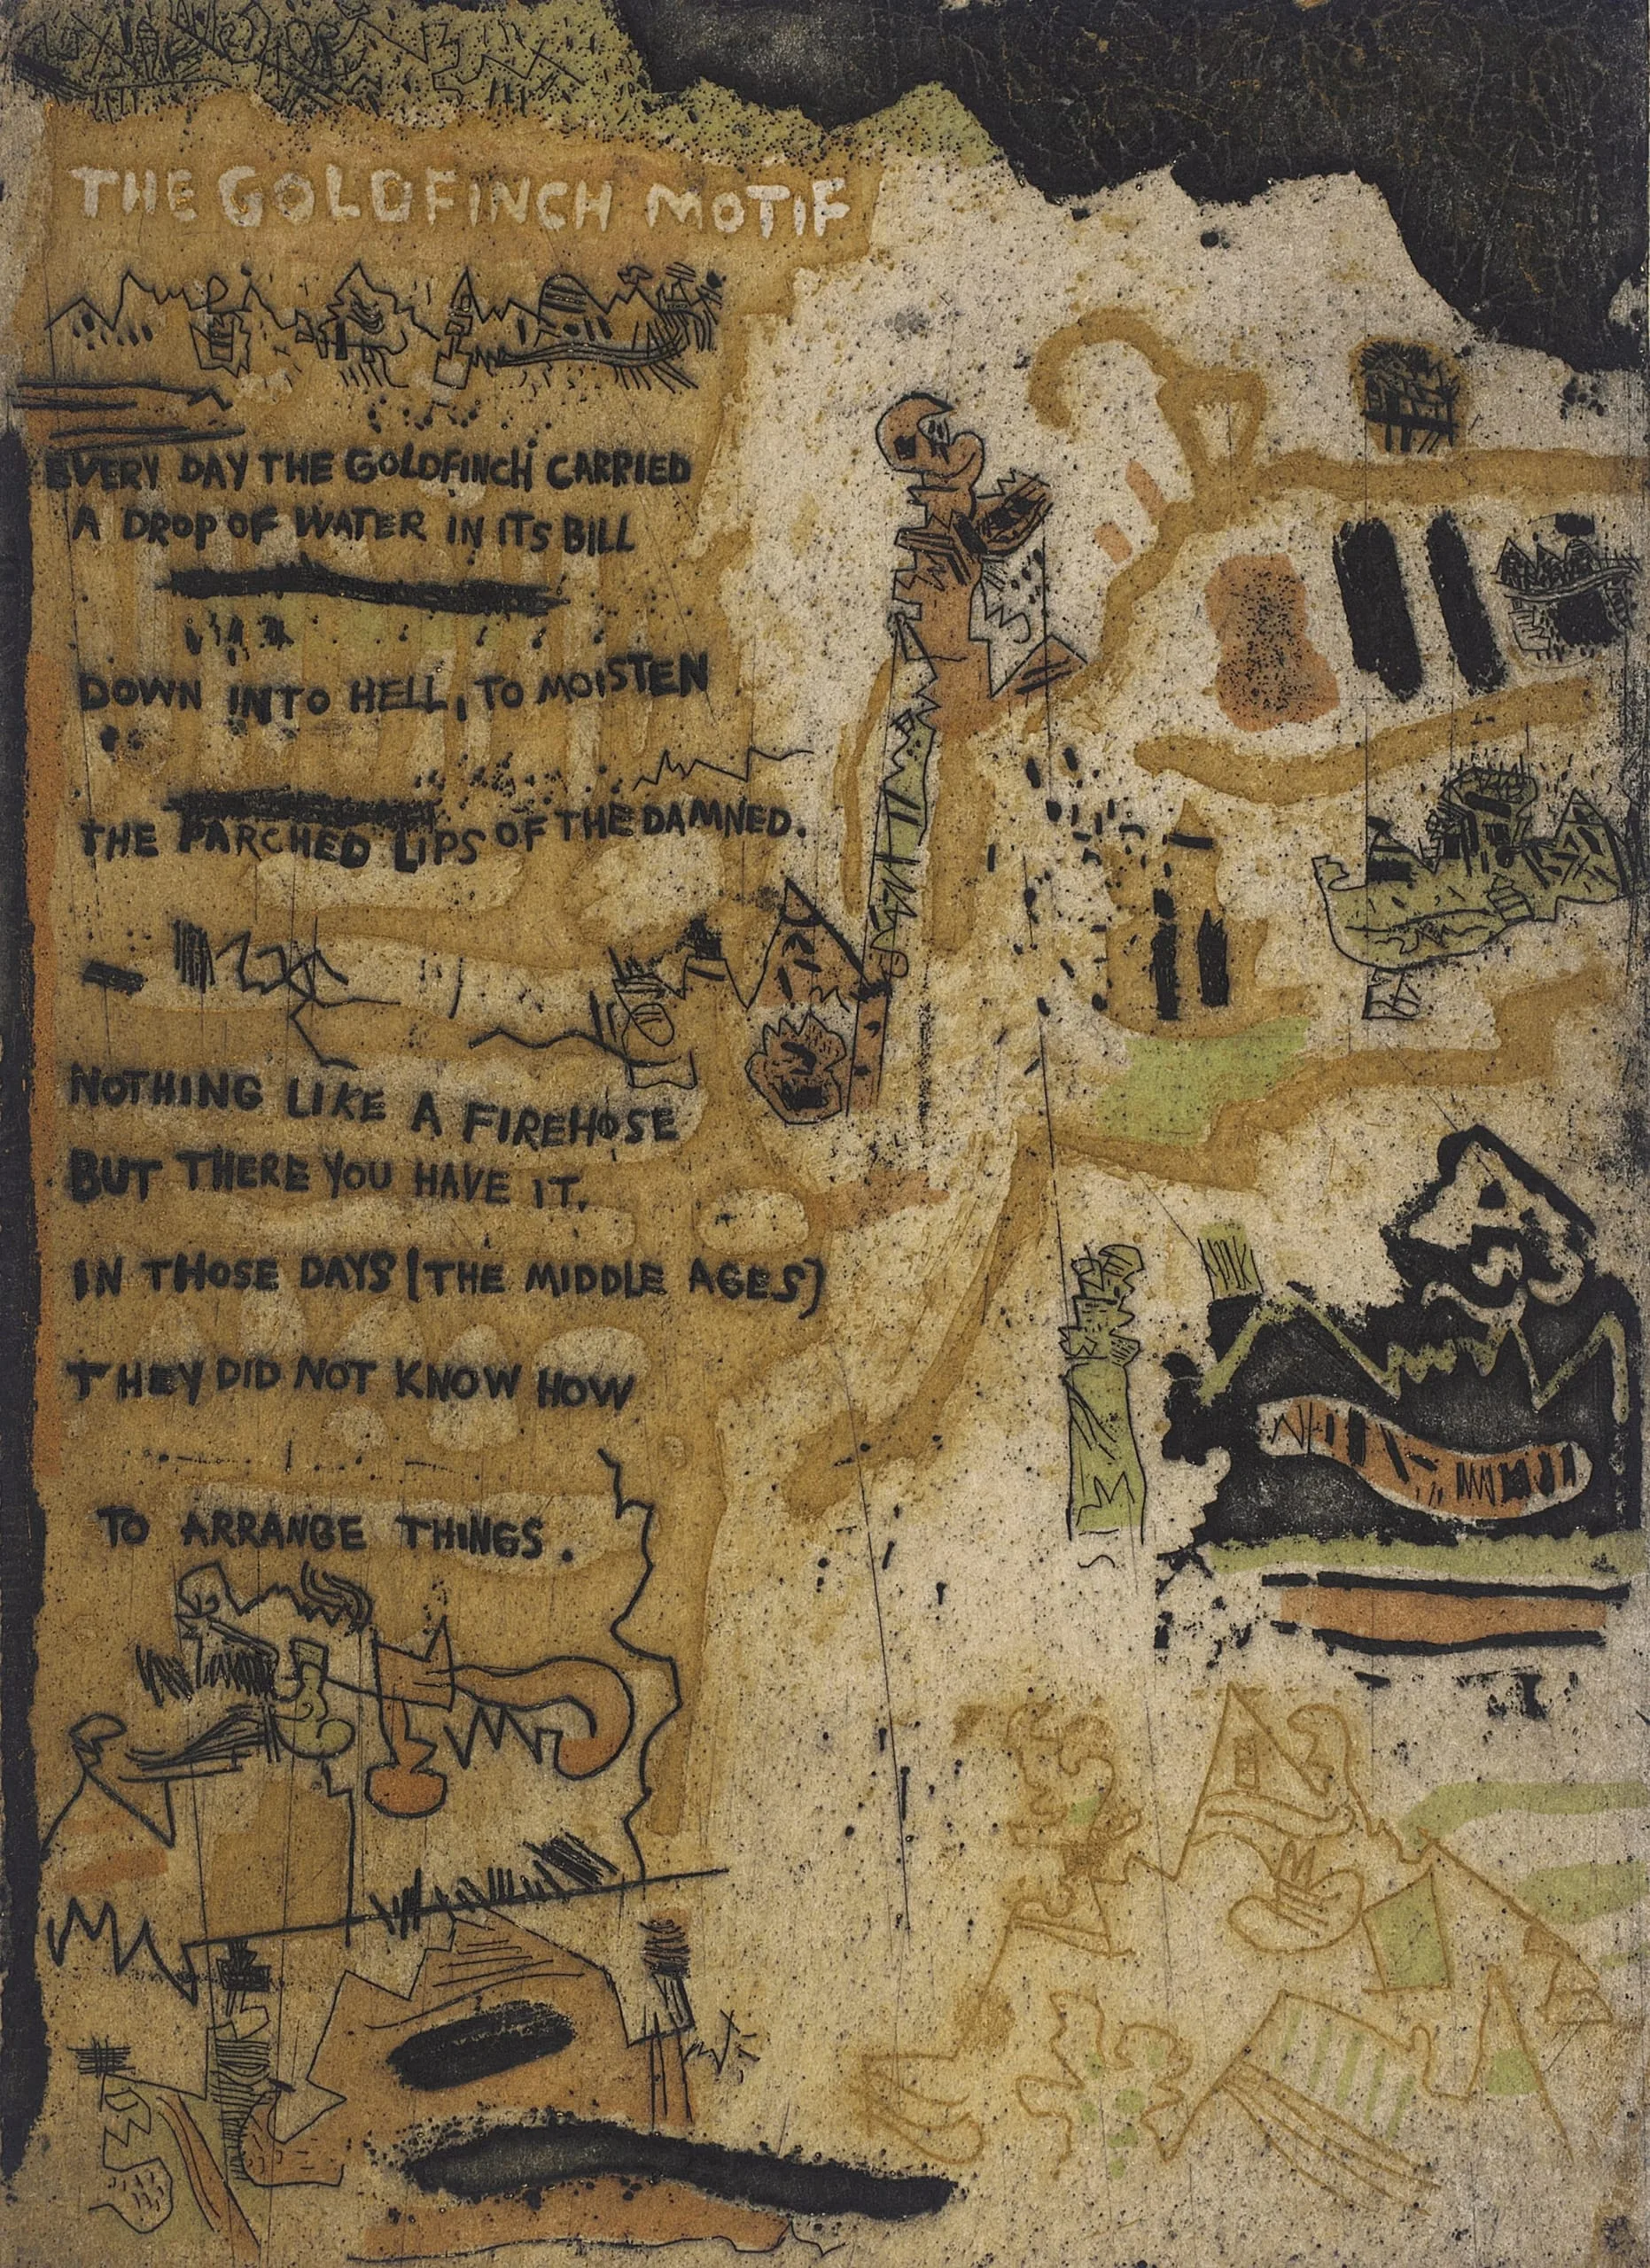 THE GOLDFINCH MOTIF
EVERY DAY THE GOLDFINCH CARRIED
A DROP OF WATER IN ITS BILL
DOWN INTO HELL, TO MOISTEN
THE PARCHED LIPS OF THE DAMNED.
NOTHING LIKE A FIREHOSE
BUT THERE YOU HAVE IT.
IN THOSE DAYS [THE MIDDLE AGES]
THEY DID NOT KNOW HOW
TO ARRANGE THINGS.